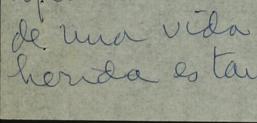 de una vida
herida es tan